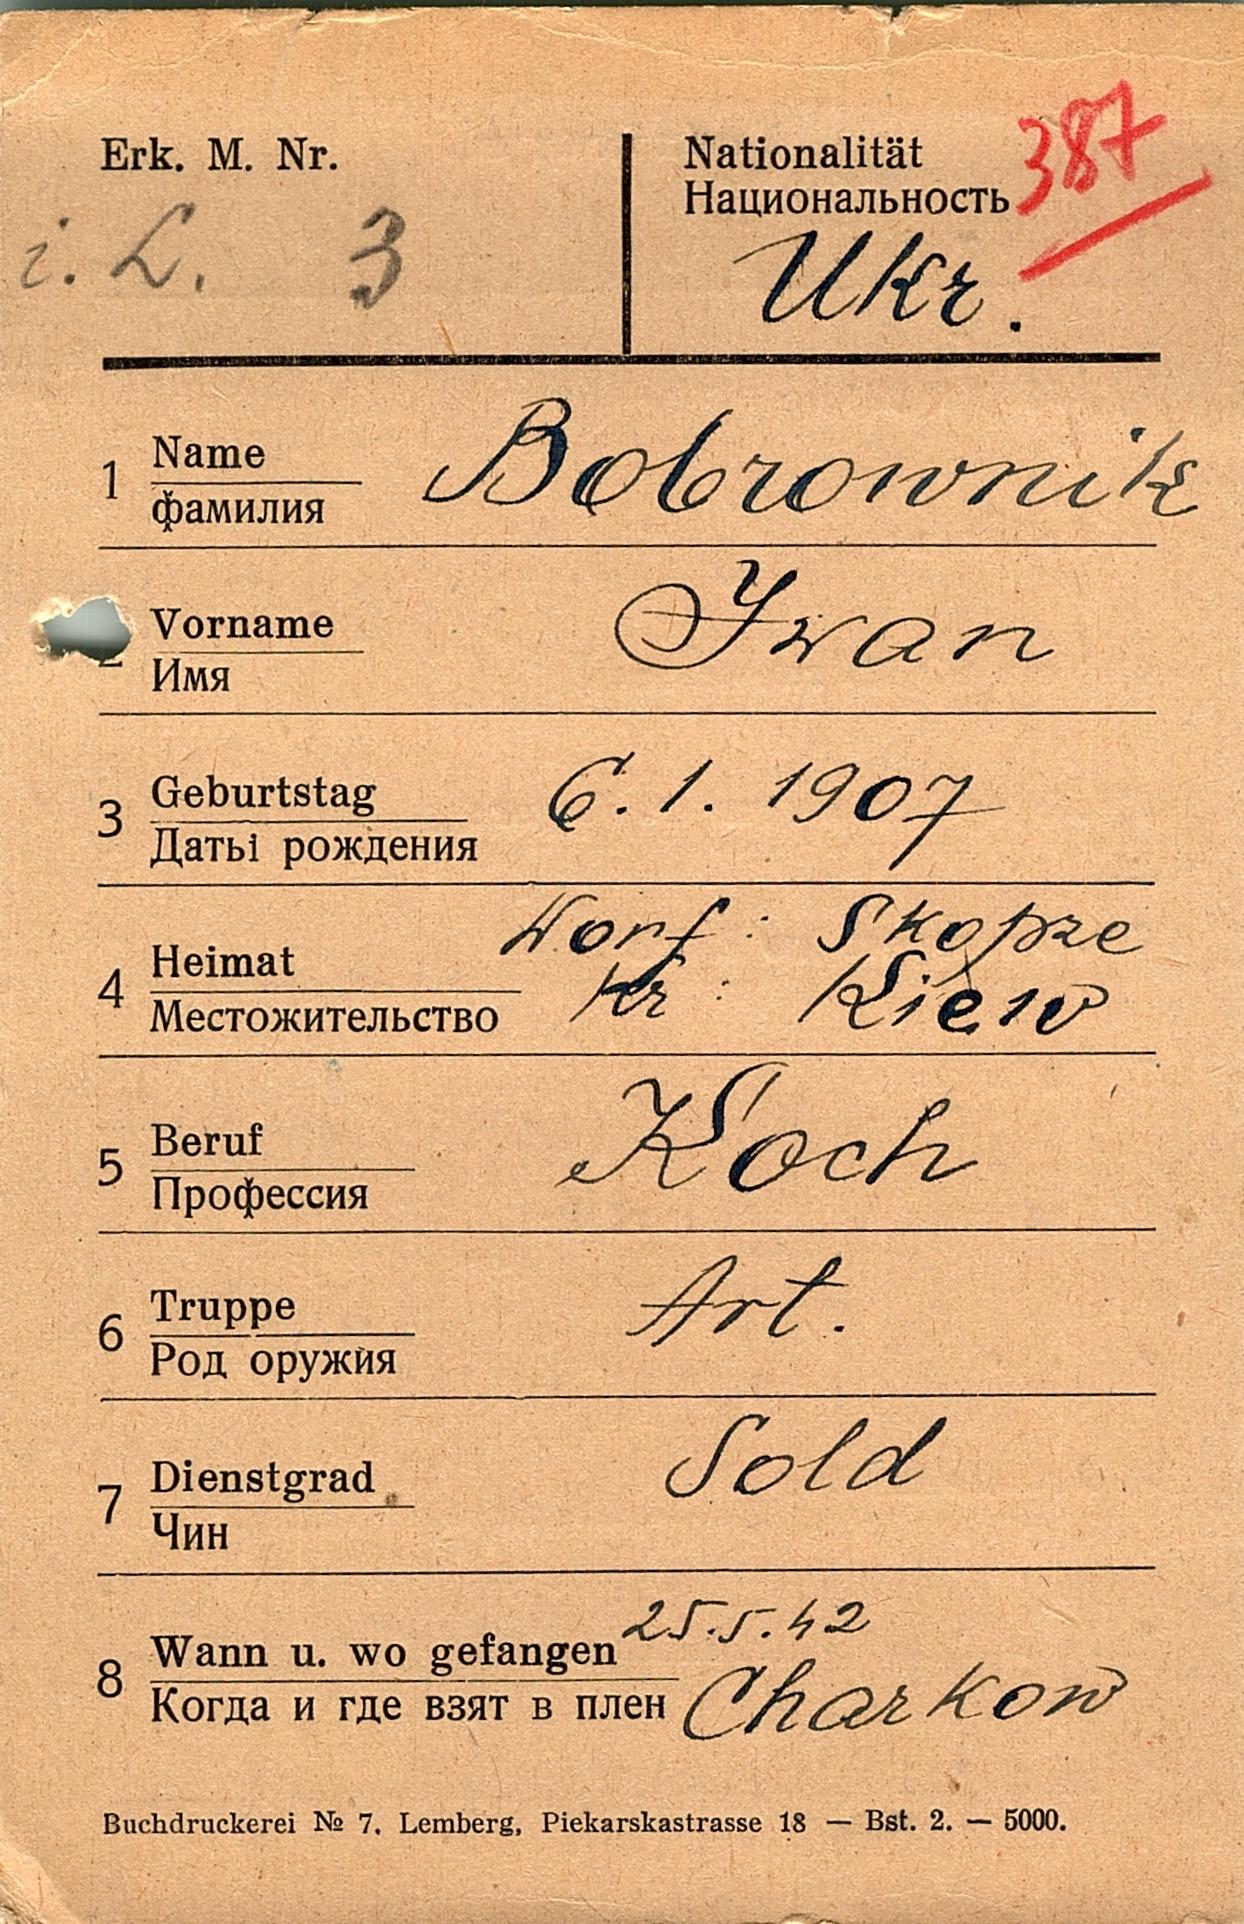 387
Erk. M. Nr.
Nationalität
Национальность
i. L. 3
Ukr.
1 Name Bobrownik
фамилия
Vorname Iwan
2 Имя
3 Geburtstag 6. 1. 1907
Даты рождения
Dorf: Skopze
4 Heimat Kr: Kiew
Местожительство
5 Beruf Koch
Профессия
6 Truppe Art.
Род оружия
7 Dienstgrad Sold
Чин
25.5.42
8 Wann u. wo gefangen
Когда и где взят в плен Charkow
Buchdruckerei № 7. Lemberg, Piekarskastrasse 18 — Bst. 2. — 5000.